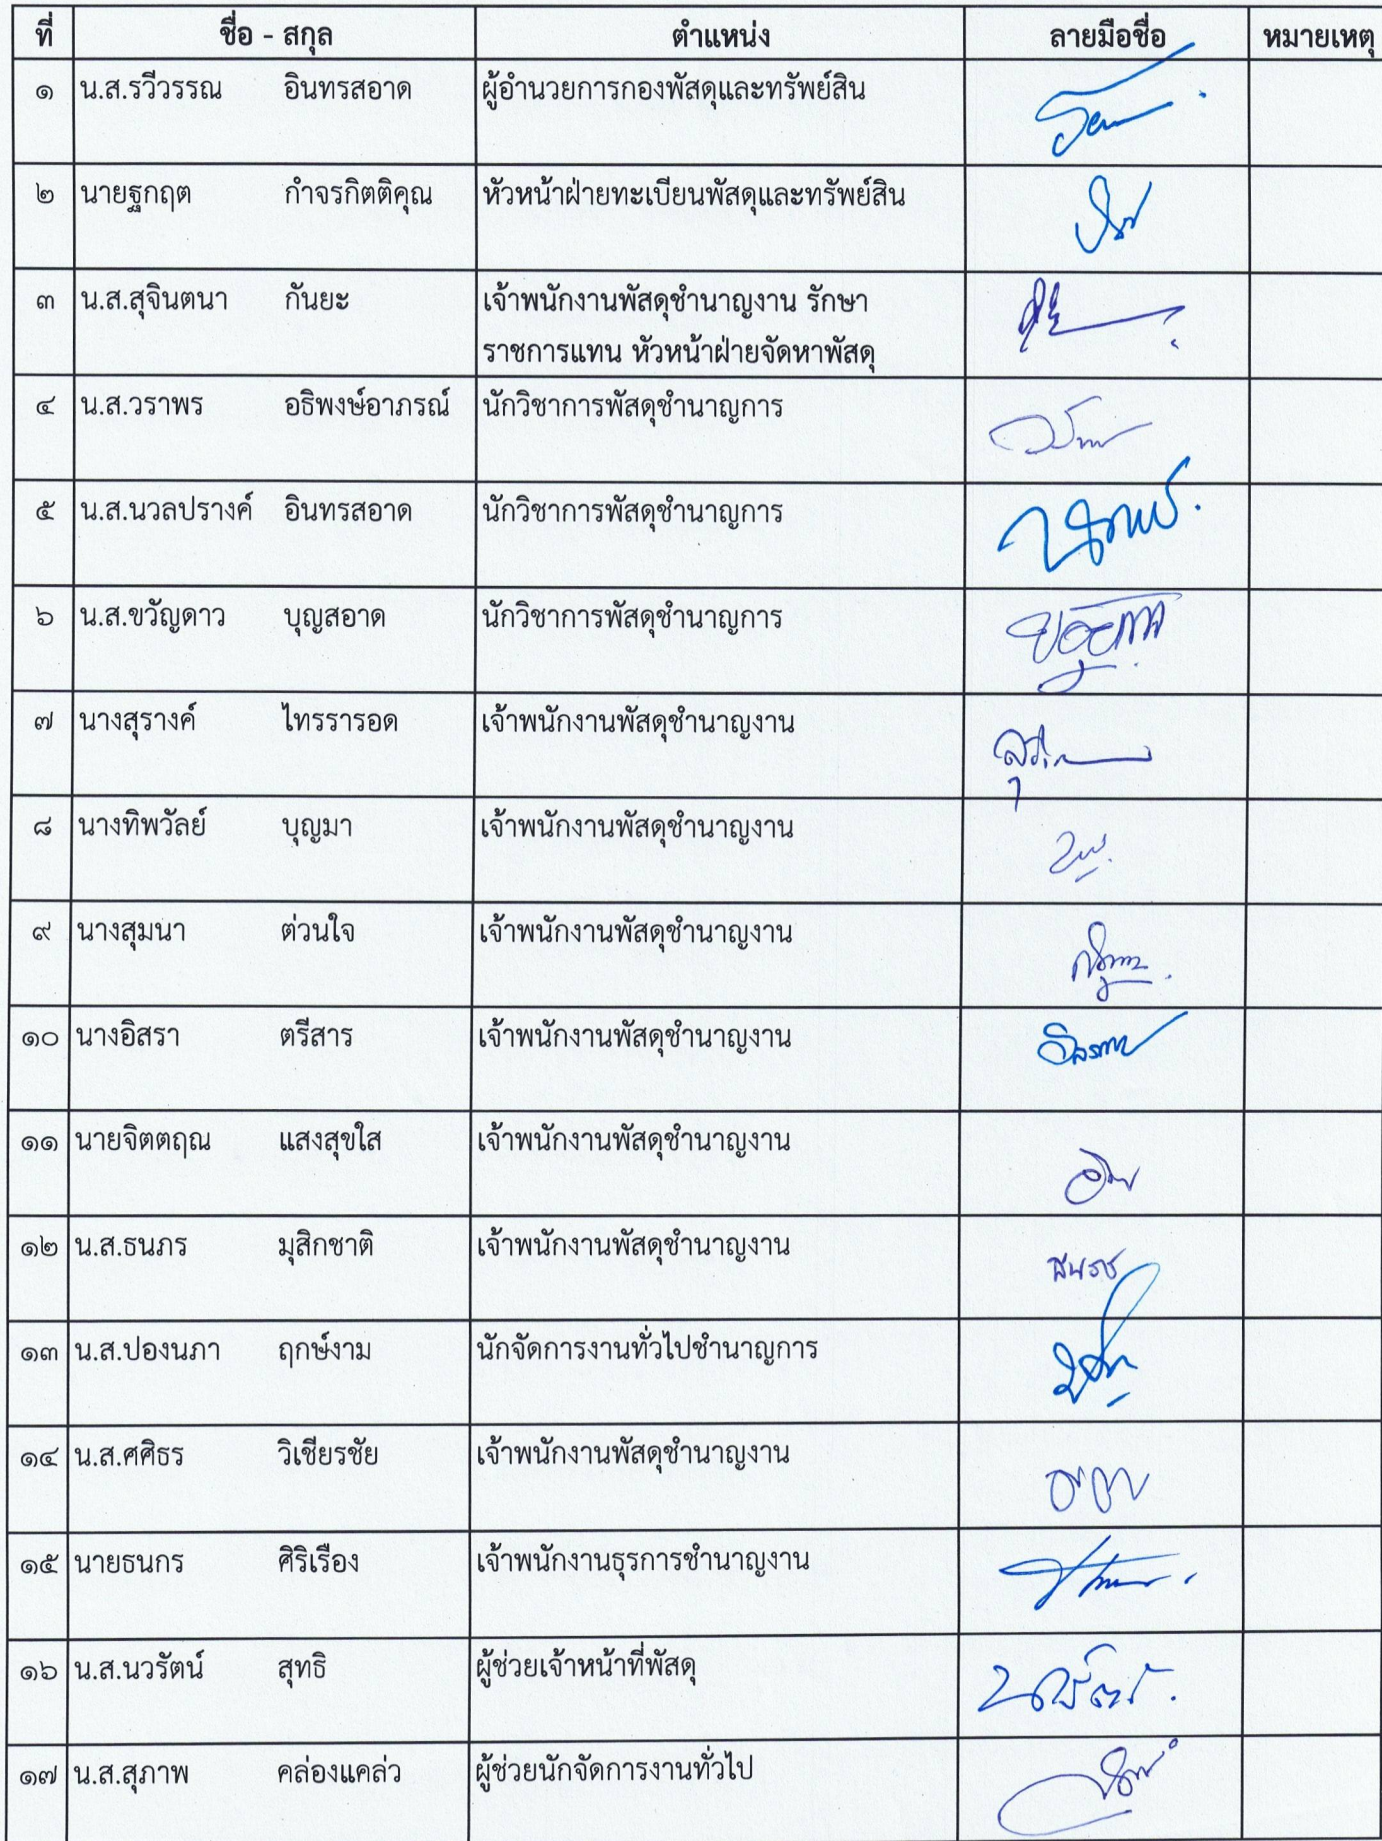 ที่ ชื่อ - สกุล ตำแหน่ง ลายมือชื่อ หมายเหตุ
๑ น.ส.รวีวรรณ อินทรสอาด ผู้อำนวยการกองพัสดุและทรัพย์สิน
๒ นายฐกฤต กำจรกิตติคุณ หัวหน้าฝ่ายทะเบียนพัสดุและทรัพย์สิน
๓ น.ส.สุจินตนา กันยะ เจ้าพนักงานพัสดุชำนาญงาน รักษา
ราชการแทน หัวหน้าฝ่ายจัดหาพัสดุ
๔ น.ส.วราพร อธิพงษ์อาภรณ์ นักวิชาการพัสดุชำนาญการ
๕ น.ส.นวลปรางค์ อินทรสอาด นักวิชาการพัสดุชำนาญการ
๖ น.ส.ขวัญดาว บุญสอาด นักวิชาการพัสดุชำนาญการ
๗ นางสุรางค์ ไทรรารอด เจ้าพนักงานพัสดุชำนาญงาน
๘ นางทิพวัลย์ บุญมา เจ้าพนักงานพัสดุชำนาญงาน
๙ นางสุมนา ต่วนใจ เจ้าพนักงานพัสดุชำนาญงาน
๑๐ นางอิสรา ตรีสาร เจ้าพนักงานพัสดุชำนาญงาน
๑๑ นายจิตตฤณ แสงสุขใส เจ้าพนักงานพัสดุชำนาญงาน
๑๒ น.ส.ธนภร มุสิกชาติ เจ้าพนักงานพัสดุชำนาญงาน
๑๓ น.ส.ปองนภา ฤกษ์งาม นักจัดการงานทั่วไปชำนาญการ
๑๔ น.ส.ศศิธร วิเชียรชัย เจ้าพนักงานพัสดุชำนาญงาน
๑๕ นายธนกร ศิริเรือง เจ้าพนักงานธุรการชำนาญงาน
๑๖ น.ส.นวรัตน์ สุทธิ ผู้ช่วยเจ้าหน้าที่พัสดุ
๑๗ น.ส.สุภาพ คล่องแคล่ว ผู้ช่วยนักจัดการงานทั่วไป